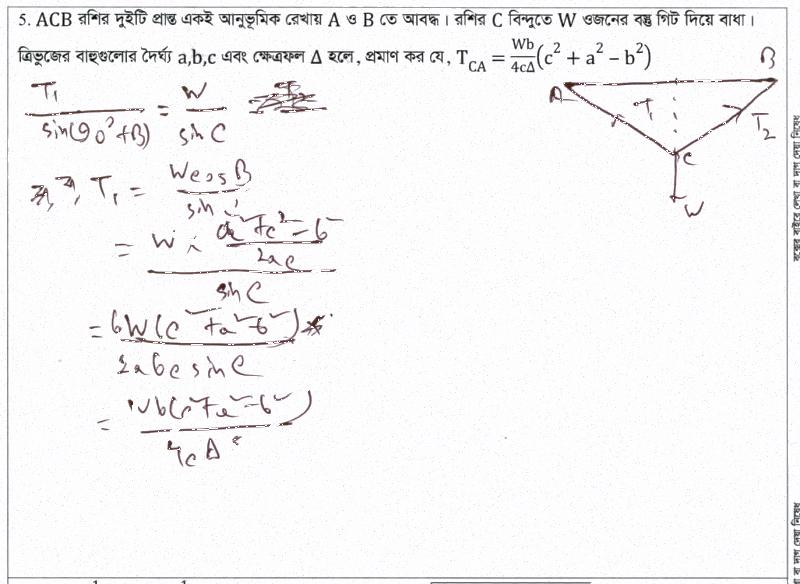 5. ACB রশির দুইটি প্রান্ত একই আনুভূমিক রেখায় A ও B তে আবদ্ধ। রশির C বিন্দুতে W ওজনের বস্তু গিট দিয়ে বাধা।
ত্রিভুজের বাহুগুলোর দৈর্ঘ্য a,b,c এবং ক্ষেত্রফল Δ হলে, প্রমাণ কর যে, T_CA = Wb/4cΔ (c² + a² − b²)
T₁/sin(90°+B) = W/sin C
বা, T₁ = W cos B/sin C
= W · (a²+c²−b²)/2ac / sin C
= bW(c²+a²−b²)/2abc sin C
= Wb(c²+a²−b²)/4cΔ
A
B
T₁
T₂
C
W